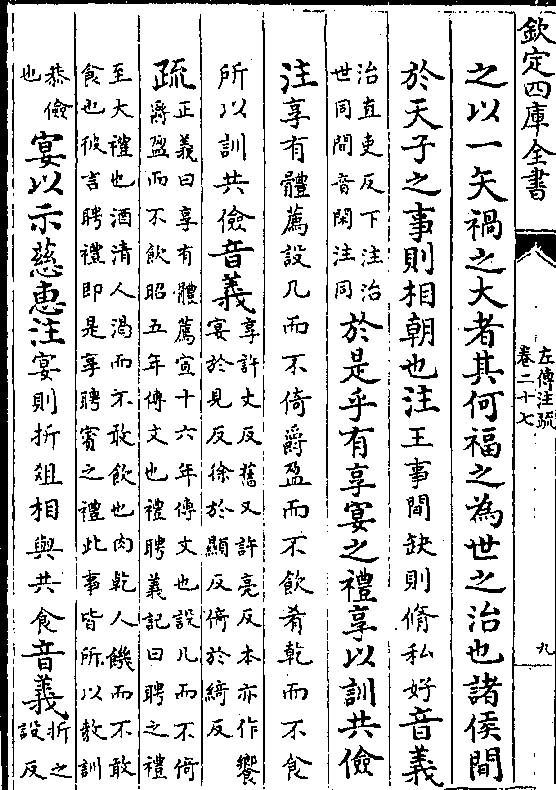 欽定四庫全書
左傳注疏
卷二十七
九
之以一矢禍之大者其何福之為世之治也諸侯間
於天子之事則相朝也注王事間缺則脩私好音義
治直吏反下注治
世同間音閑注同
於是乎有享宴之禮享以訓共儉
注享有體薦設几而不倚爵盈而不飲肴乾而不食
所以訓共儉音義
享許丈反舊又許亮反本亦作饗
宴於見反徐於顯反倚於綺反
疏
正義曰享有體薦宣十六年傳文也設几而不倚
爵盈而不飲昭五年傳文也禮聘義記曰聘之禮
至大禮也酒清人渴而不敢飲也肉乾人饑而不敢
食也彼言聘禮即是享聘賓之禮此事皆所以教訓
恭儉
也
宴以示慈惠注宴則折俎相與共食音義
折之
設反